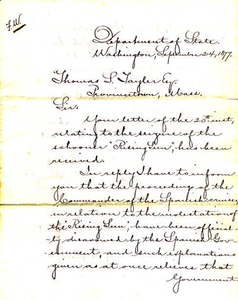 Department of State.
Washington, September 24, 1877.
Thomas S. Taylor Esq.
Provincetown, Mass.
Sir:
Your letter of the 20th inst,
relating to the seizure of the
schooner "Rising Sun", has been
received.
In reply I have to inform
you that the proceedings of the
Commander of the Spanish cruiser
in relation to the molestation of
the "Rising Sun", have been official-
ly disavowed by the Spanish Gov-
ernment, and such explanations
given as at once relieves that
Government